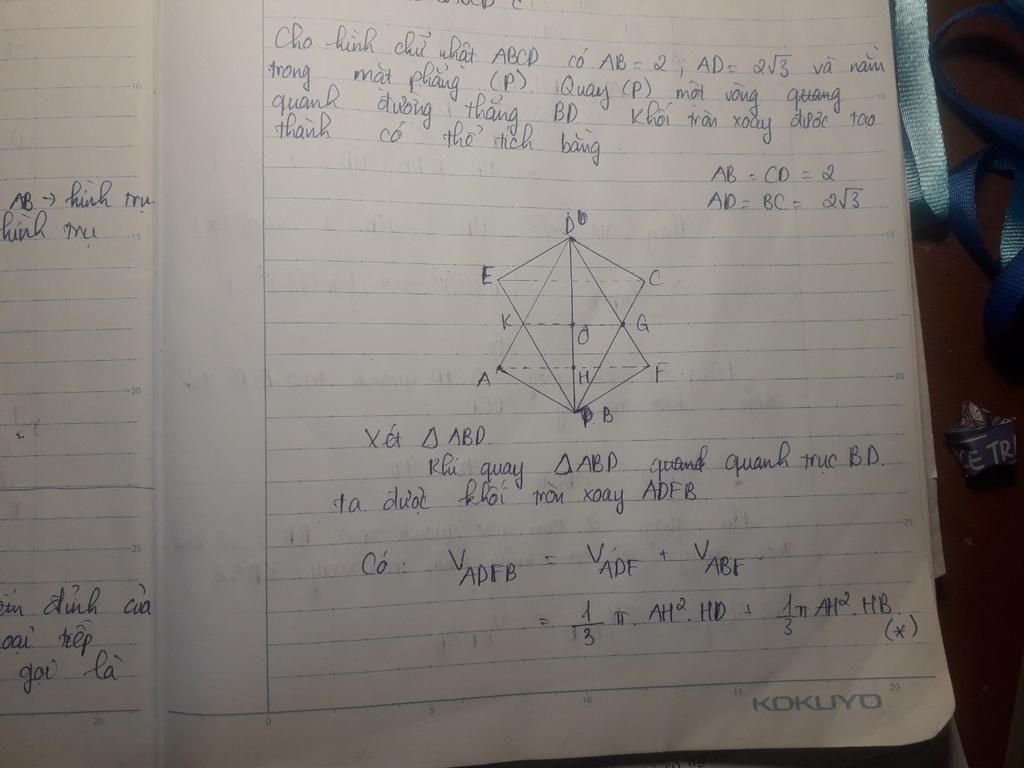 Cho hình chữ nhật ABCD có AB = 2 ; AD = 2√3 và nằm
trong mặt phẳng (P). Quay (P) một vòng quang
quanh đường thẳng BD Khối tròn xoay được tạo
thành có thể tích bằng
AB = CD = 2
AD = BC = 2√3
AB → hình trụ
hình trụ
D
E
C
K
G
O
A
H
F
B
Xét Δ ABD
Khi quay Δ ABD quanh quanh trục BD.
ta được khối tròn xoay ADFB.
Có: V_ADFB = V_ADF + V_ABF
= 1/3 π. AH². HD + 1/3 π AH². HB.
(*)
đỉnh của
gọi là
KOKUYO
10
15
20
25
20
0
5
10
15
20
10
15
20
25